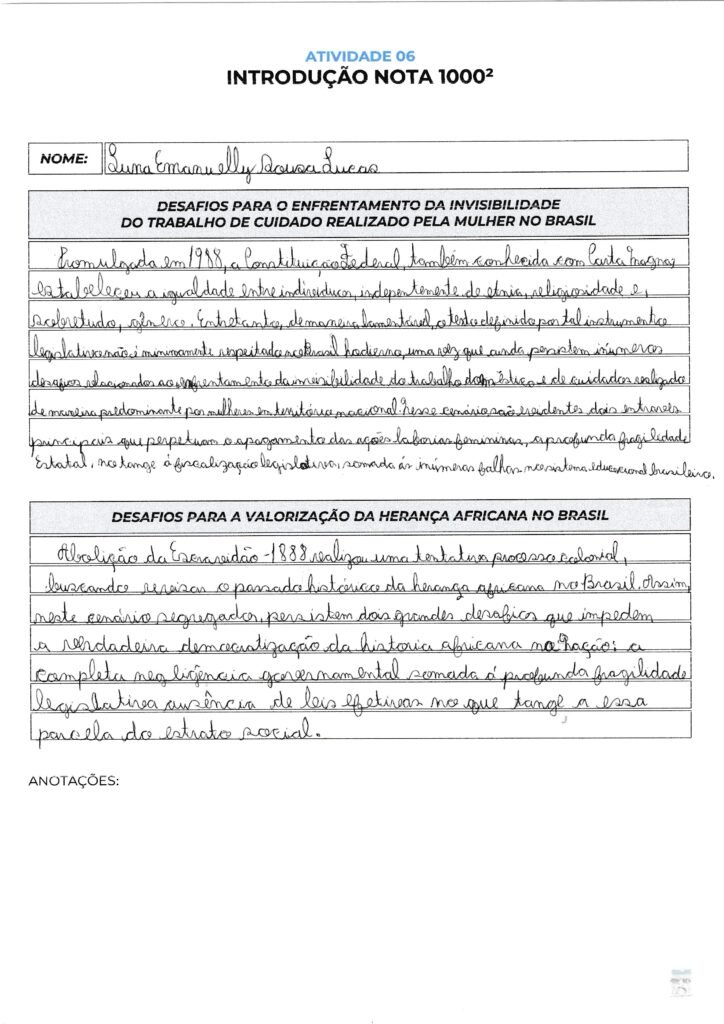 ATIVIDADE 06
INTRODUÇÃO NOTA 1000²
NOME: Luna Emanuelly Sousa Lucas
DESAFIOS PARA O ENFRENTAMENTO DA INVISIBILIDADE
DO TRABALHO DE CUIDADO REALIZADO PELA MULHER NO BRASIL
Promulgada em 1988, a Constituição Federal, também conhecida com Carta Magna,
estabeleceu a igualdade entre indivíduos, independentemente de etnia, religiosidade e,
sobretudo, gênero. Entretanto, de maneira lamentável, o texto definido por tal instrumento
legislativo não é minimamente respeitado no Brasil hodierno, uma vez que ainda persistem inúmeros
desafios relacionados ao enfrentamento da invisibilidade do trabalho doméstico e de cuidados realizado
de maneira predominante por mulheres em território nacional. Nesse cenário são evidentes dois entraves
principais que perpetuam o apagamento das ações laborias femininas, a profunda fragilidade
Estatal, no tange à fiscalização legislativa, somada ás inúmeras falhas no sistema educacional brasileiro.
DESAFIOS PARA A VALORIZAÇÃO DA HERANÇA AFRICANA NO BRASIL
Abolição da Escravidão -1888 realizou uma tentativa processo colonial,
buscando revisar o passado histórico da herança africana no Brasil. Assim,
neste cenário segregador, persistem dois grandes desafios que impedem
a verdadeira democratização da historia africana na Nação: a
completa negligência governamental somada á profunda fragilidade
legislativa ausência de leis efetivas no que tange a essa
parcela do estrato social.
ANOTAÇÕES: